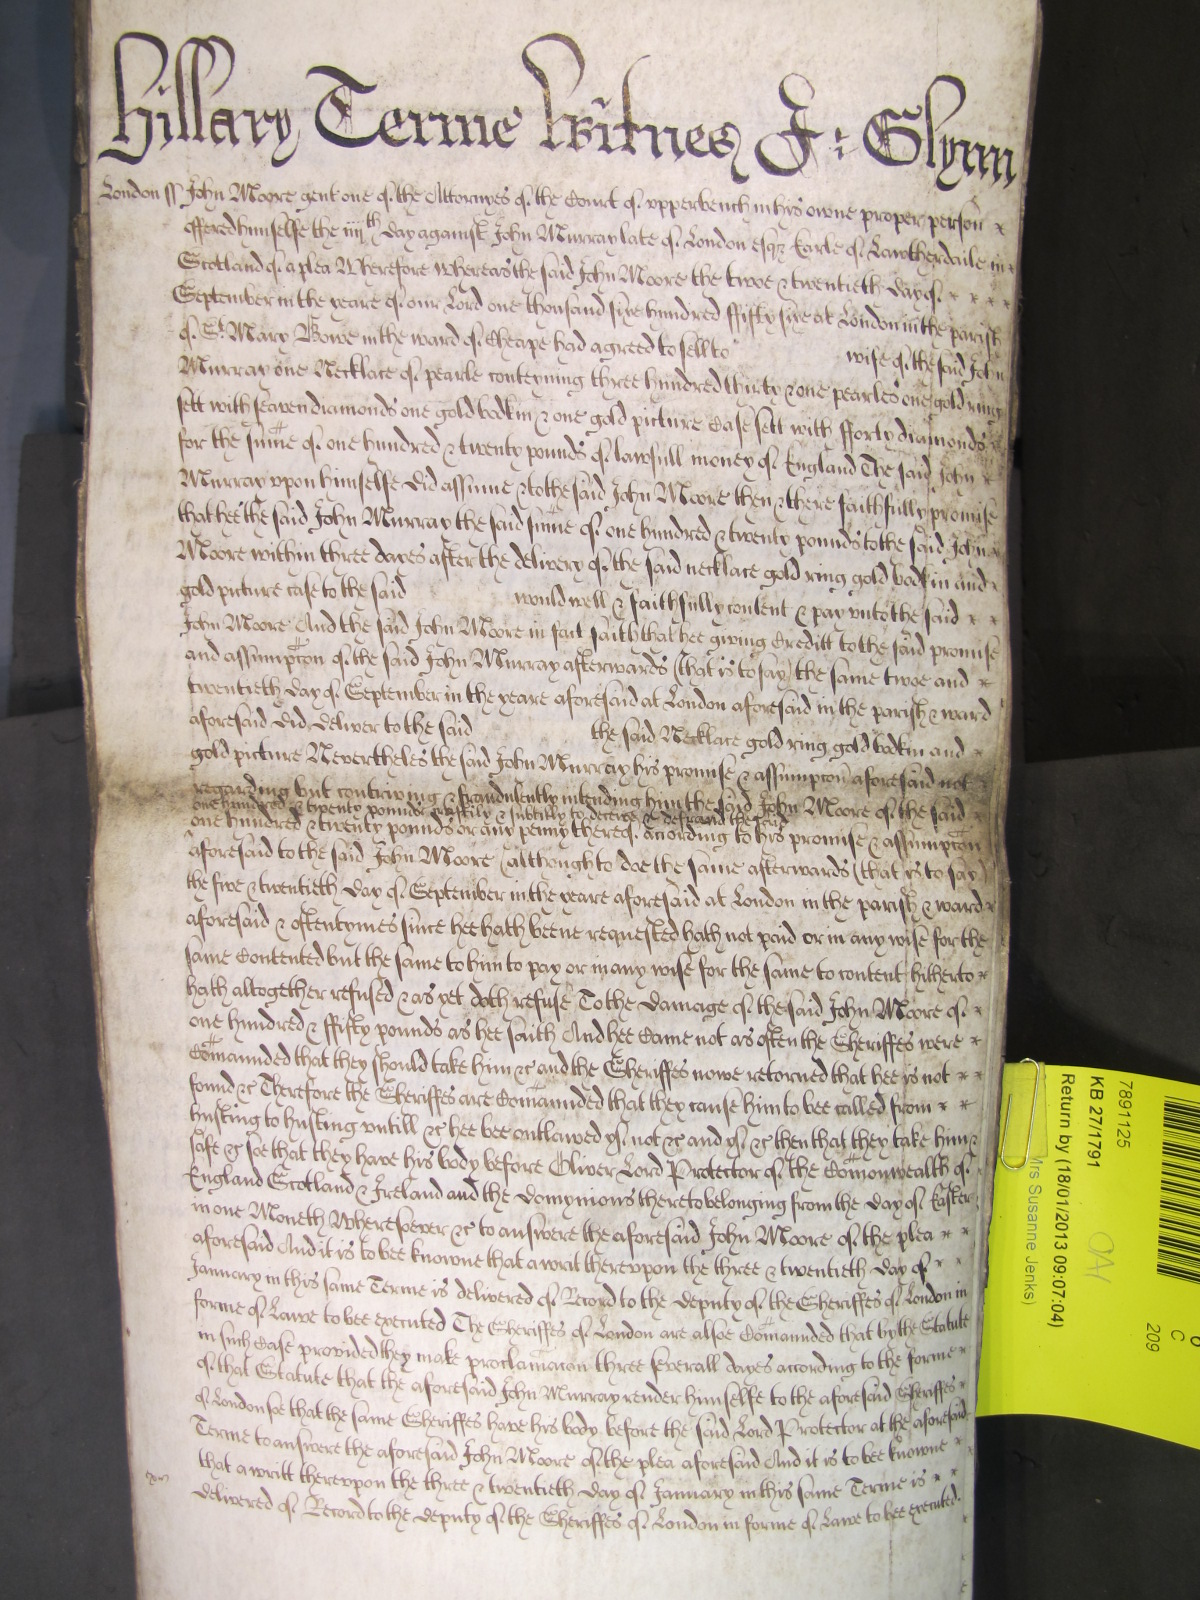 Hillary Terme Witnes J: Glynn
London ss John Moore gent one of the Attorneyes of the Court of vpperbench in his owne proper person
offered himselfe the iiijth day against John Murray late of London esqr Earle of Lawtherdaile in
Scotland of a plea Wherefore whereas the said John Moore the twoe & twentieth day of
September in the yeare of our Lord one thousand sixe hundred ffifty sixe at London in the parish
of St Mary Bowe in the ward of Cheape had agreed to sell to wife of the said John
Murray one Necklace of pearle conteyning three hundred thirty & one pearles one gold ring
sett with seaven diamonds one gold bodkin & one gold picture Case sett with fforty diamonds
for the sum̄e of one hundred & twenty pounds of lawfull money of England The said John
Murray vpon himselfe did assume & to the said John Moore then & there faithfully promise
that hee the said John Murray the said sum̄e of one hundred & twenty pounds to the said John
Moore within three dayes after the delivery of the said necklace gold ring gold bodkin and
gold picture case to the said would well & faithfully content & pay vnto the said
John Moore And the said John Moore in fact saith that hee giving Creditt to the said promise
and assumpton of the said John Murray afterwards (that is to say) the same twoe and
twentieth day of September in the yeare aforesaid at London aforesaid in the parish & ward
aforesaid did deliver to the said the said Necklace gold ring gold bodkin and
gold picture Neverthelesse the said John Murray his promise & assumpton aforesaid not
regarding but contriving & fraudulently intending him the said John Moore of the said
one hundred & twenty pounds craftily & subtilly to deceive & defraud the said
one hundred & twenty pounds or any penny thereof acording to his promise & assumpton
aforesaid to the said John Moore (although to doe the same afterwards (that is to say)
the five & twentieth day of September in the yeare aforesaid at London in the parish & ward
aforesaid & oftentymes since hee hath beene requested hath not paid or in any wise for the
same Contented but the same to him to pay or in any wise for the same to content hitherto
hath altogether refused & as yet doth refuse To the damage of the said John Moore of
one hundred & ffifty pounds as hee saith And hee Came not as often the Sheriffes were
Com̄aunded that they should take him &c and the Sheriffes nowe retorned that hee is not
found &c Therefore the Sheriffes are Com̄aunded that they cause him to bee called from
husting to husting vntill &c hee bee outlawed yf not &c and yf &c then that they take him
safe &c soe that they have his body before Oliver Lord Protector of the Com̄onwealth of
England Scotland & Ireland and the domynions thereto belonging from the day of Easter
in one Moneth Wheresoever &c to answere the aforesaid John Moore of the plea
aforesaid And it is to bee knowne that a writ therevpon the three & twentieth day of
January in this same Terme is delivered of Record to the deputy of the Sheriffes of London in
forme of Lawe to bee executed The Sheriffes of London are alsoe Com̄aunded that by the Statute
in such Case provided they make proclamacion three severall dayes according to the forme
of that Statute that the aforesaid John Murray render himselfe to the aforesaid Sheriffes
of London soe that the same Sheriffes have his body before the said Lord Protector at the aforesaid
Terme to answere the aforesaid John Moore of the plea aforesaid And it is to bee knowne
that a writt therevpon the three & twentieth day of January in this same Terme is
delivered of Record to the deputy of the Sheriffes of London in forme of Lawe to bee executed.
7891125
KB 27/1791
Return by (18/01/2013 09:07:04)
Mrs Susanne Jenks)
C
209